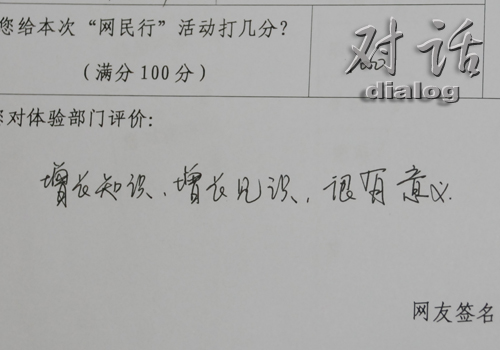 您给本次“网民行”活动打几分?
(满分100分)
对话
dialog
您对体验部门评价:
增长知识、增长见识,很有意义.
网友签名